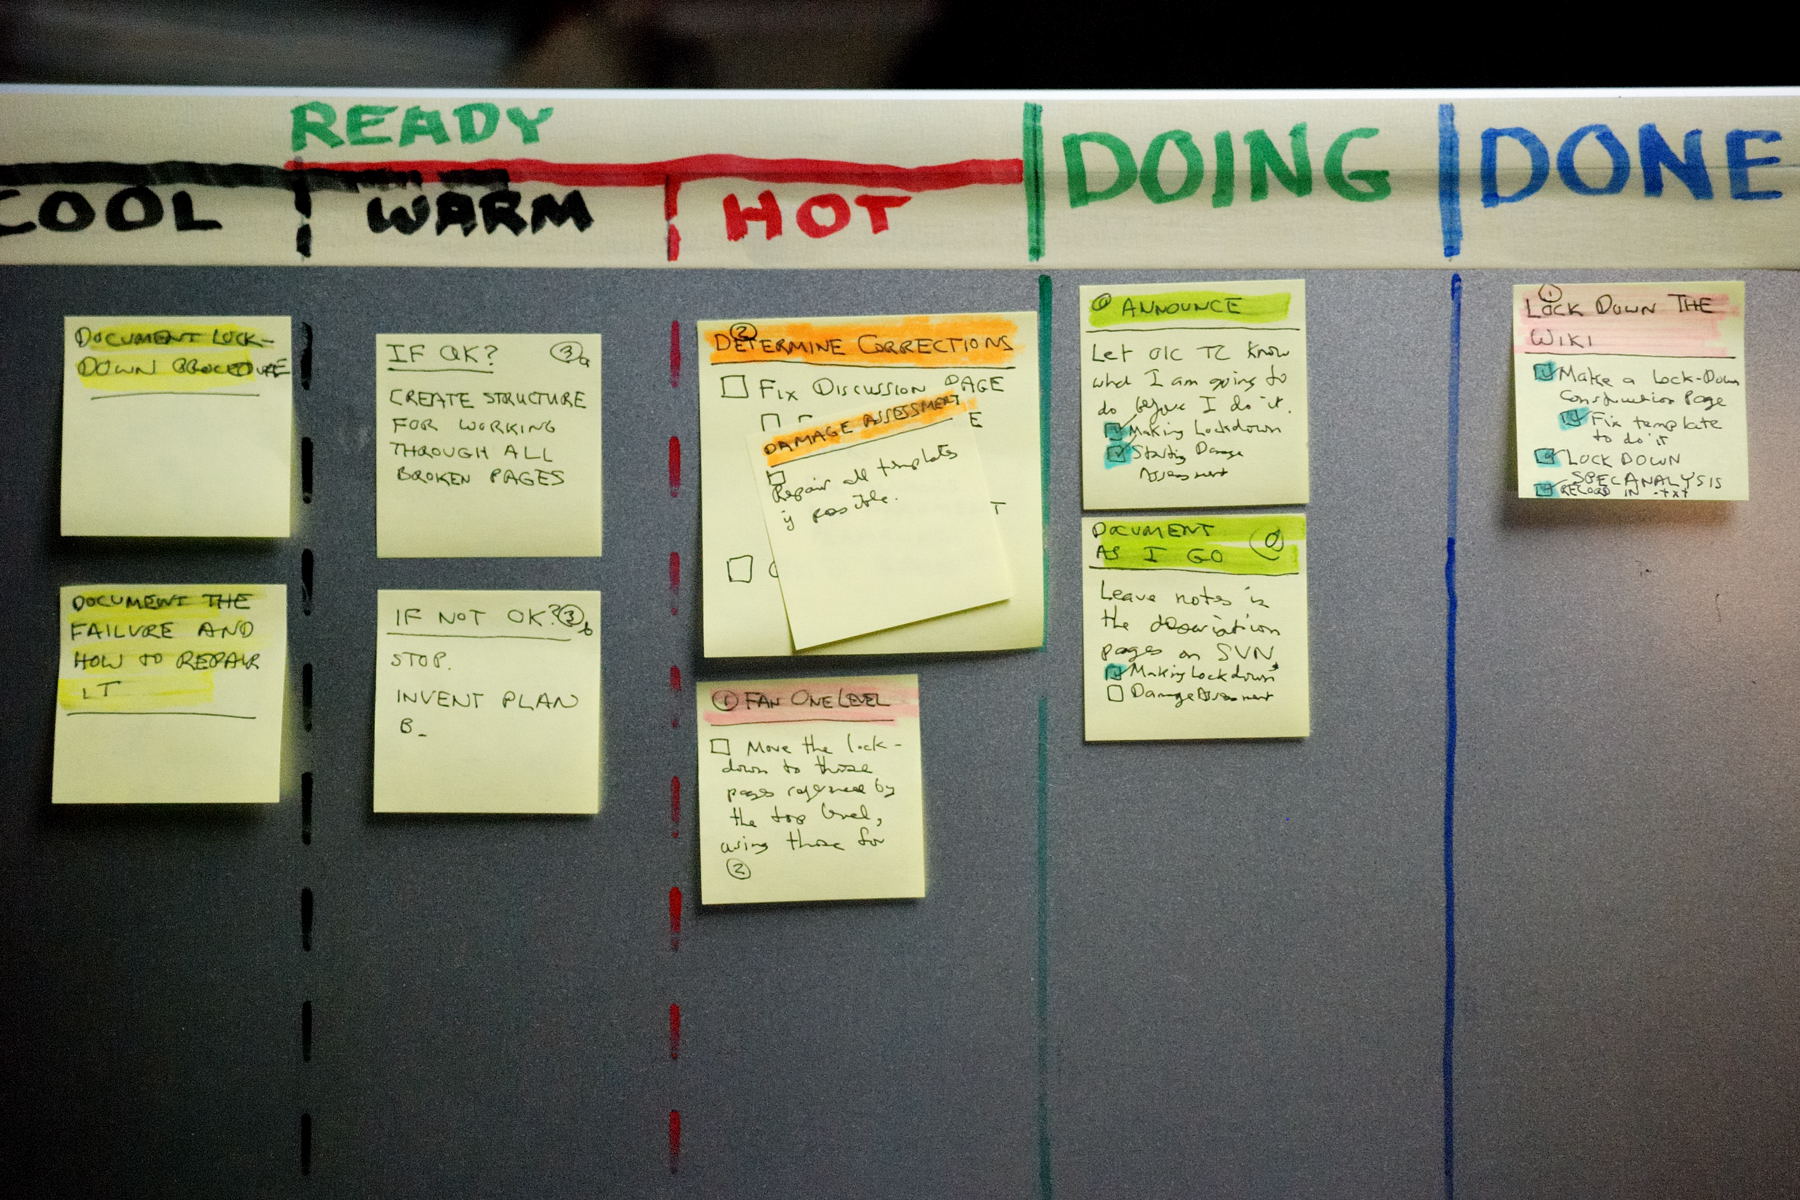 READY
COOL
WARM
HOT
DOING
DONE
DOCUMENT LOCK-
DOWN PROCEDURE
DOCUMENT THE
FAILURE AND
HOW TO REPAIR
IT
IF OK? 3a
CREATE STRUCTURE
FOR WORKING
THROUGH ALL
BROKEN PAGES
IF NOT OK? 3b
STOP.
INVENT PLAN
B_
2
DETERMINE CORRECTIONS
FIX DISCUSSION PAGE
E
T
DAMAGE ASSESSMENT
Repair all templates
if possible.
1 FAN ONE LEVEL
Move the lock-
down to those
pages referenced by
the top level,
using those for
2
0 ANNOUNCE
Let OIC TC know
what I am going to
do before I do it.
Making Lockdown
Starting Damage
Assessment
DOCUMENT
AS I GO 0
Leave notes in
the description
pages on SVN
Making Lockdown
Damage Assessment
1
LOCK DOWN THE
WIKI
Make a Lock-Down
Construction Page
Fix template
to do it
LOCK DOWN
SPEC ANALYSIS
RECORD IN .txt